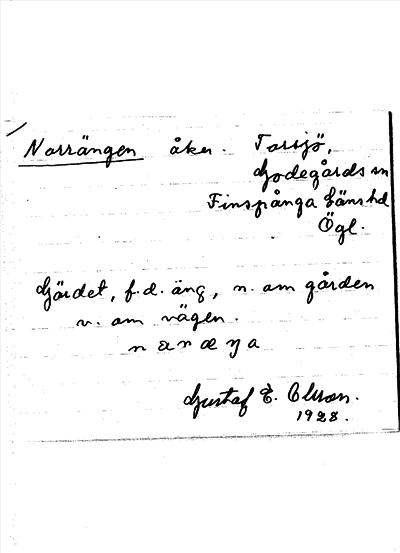 Norrängen åker. Torsjö,
Godegårds sn
Finspånga läns hd
Ögl.
Gärdet, f.d. äng, n. om gården
v. om vägen.
Gustaf E. Olsson.
1928.